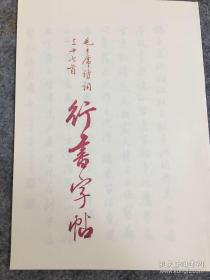 毛主席诗词
三十七首
行书字帖